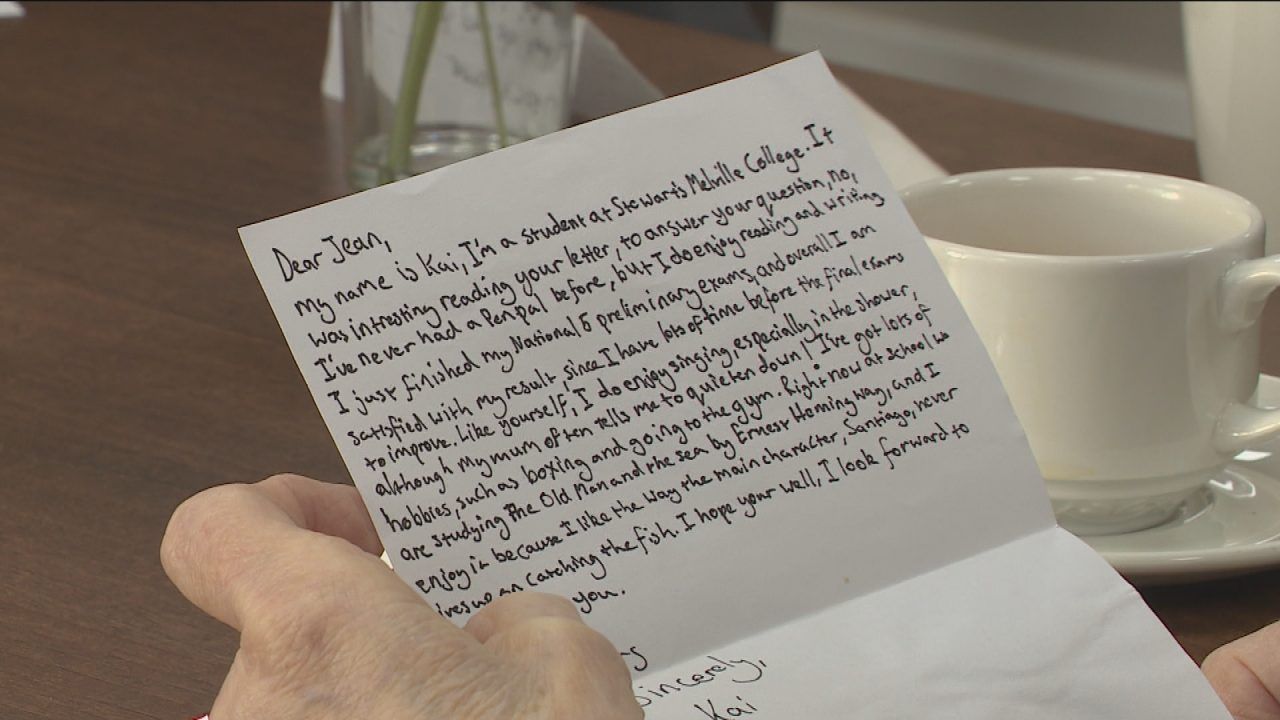 Dear Jean,
My name is Kai, I'm a student at Stewarts Melville College. It
was intresting reading your letter, to answer your question, no,
I've never had a Penpal before, but I do enjoy reading and writing
I just finished my National 5 preliminary exams, and overall I am
satisfied with my result, since I have lots of time before the final exams
to improve. Like yourself, I do enjoy singing, especially in the shower,
although my mum often tells me to quieten down! I've got lots of
hobbies, such as boxing and going to the gym. Right now at school we
are studying The Old Man and the sea by Ernest Hemingway, and I
enjoy it because I like the way the main character, Santiago, never
ives up on catching the fish. I hope your well, I look forward to
you.
rs
Sincerely,
Kai